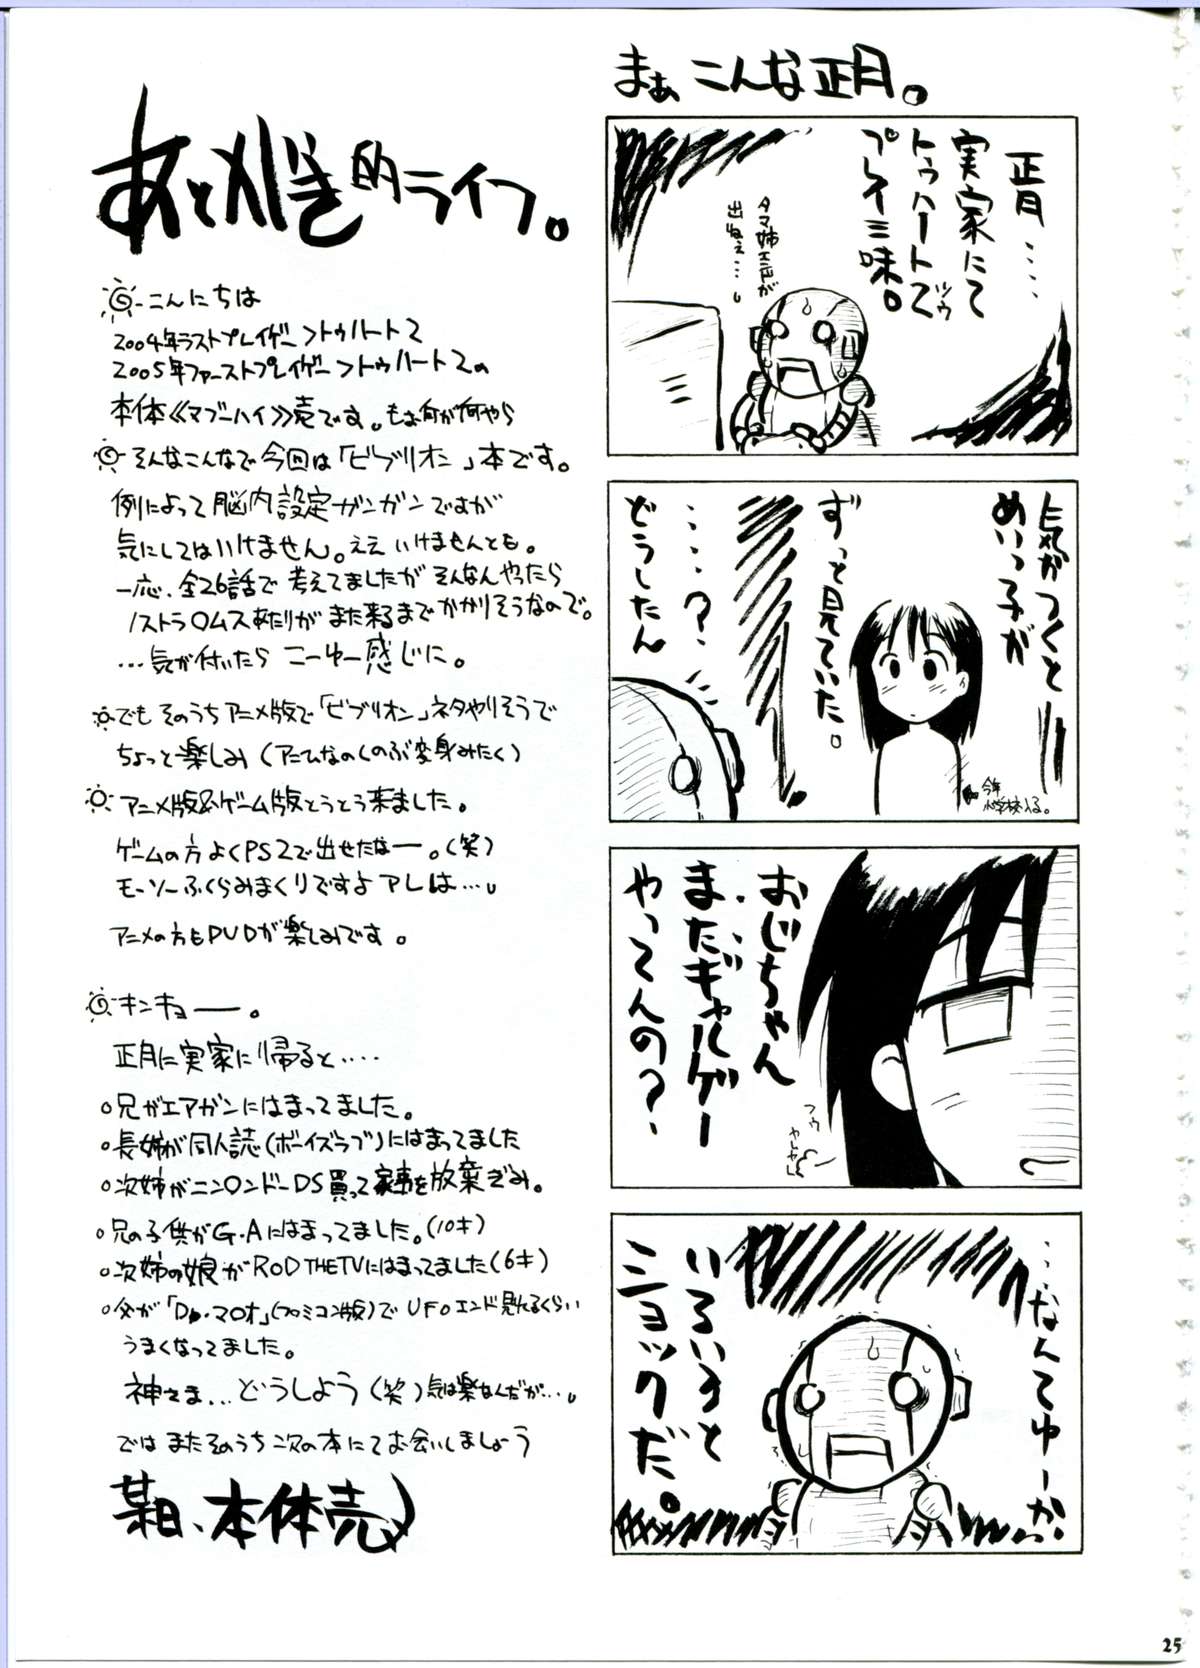 まぁ こんな正月。
正月・・・・
実家にて
トゥハートでツゥ
プレイ三昧。
タマ姉エンドが
出ねぇ・・・。
気がつくと
めいっ子が
ずっと見ていた。
今年
小学校入る。
・・・・?
どうしたん
おじちゃん
またギャルゲー
やってんの?
フゥ
ヤレヤレ
・・・なんてゆーか
いろいろと
ショックだ。
あとがき的ライフ。
こんにちは
2004年ラストプレイゲー>トゥハート2
2005年ファーストプレイゲー>トゥハート2の
本体《マブーハイ》売です。もぉ何が何やら
そんなこんなで今回は「ビブリオン」本です。
例によって脳内設定ガンガンですが
気にしてはいけません。ええ いけませんとも。
一応、全26話で考えてましたが そんなんやったら
ノストラ○ムスあたりがまた来るまでかかりそうなので。
・・・気が付いたら こーゆー感じに。
でも そのうちアニメ版で「ビブリオン」ネタやりそうで
ちょっと楽しみ(アニひなのしのぶ変身みたく)
アニメ版&ゲーム版とうとう来ました。
ゲームの方 よくPS2で出せたなー。(笑)
モーソーふくらみまくりですよアレは・・・。
アニメの方もDVDが楽しみです。
キンキョー。
正月に実家に帰ると・・・・
○兄がエアガンにはまってました。
○長姉が同人誌(ボーイズラブ)にはまってました
○次姉がニン○ンドーDS買って家事を放棄ぎみ。
○兄の子供がG・Aにはまってました。(10才)
○次姉の娘がROD THETVにはまってました(6才)
○父が「Dr.マ○オ」(ファミコン版)でUFOエンド見れるくらい
うまくなってました。
神さま・・・どうしよう(笑)気は楽なんだが・・・。
では またそのうち次の本にてお会いしましょう
某日、本体売
25